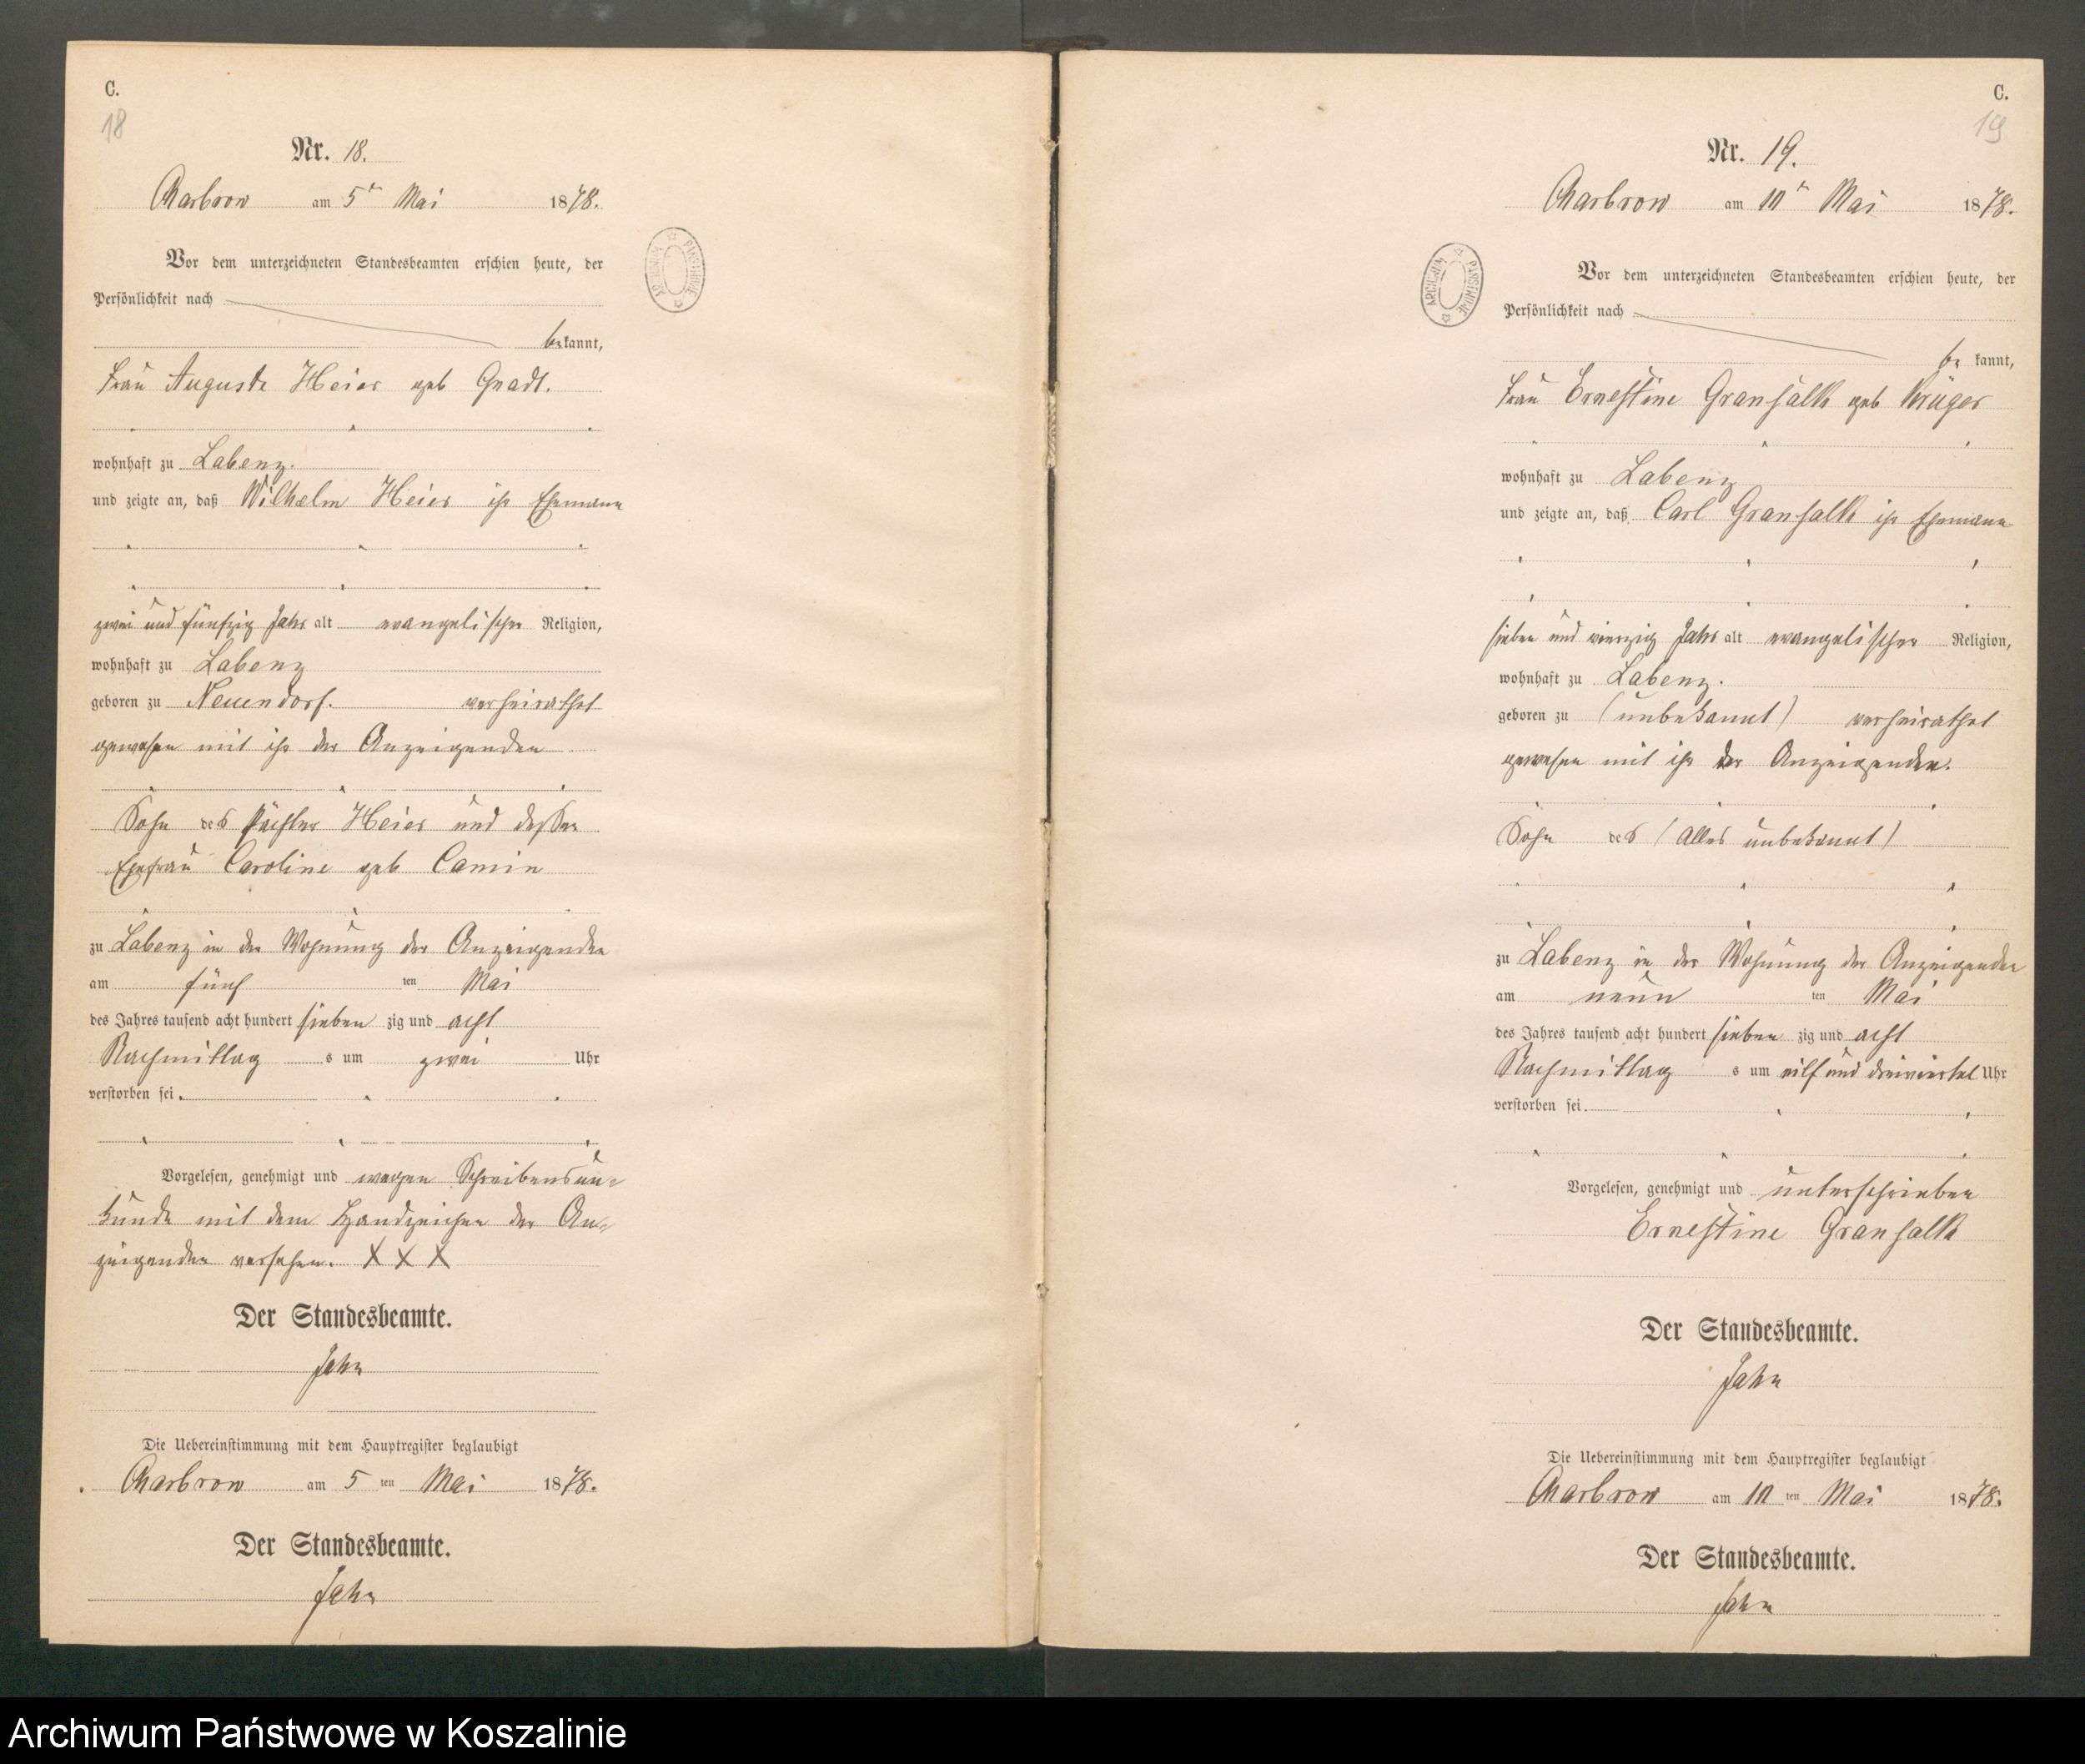 C.
18
Nr. 18.
Charbrow am 5t Mai 1878.
Vor dem unterzeichneten Standesbeamten erschien heute, der
Persönlichkeit nach
bekannt,
Frau Auguste Heier geb Gnadt.
wohnhaft zu Labenz.
und zeigte an, daß Wilhelm Heier ihr Ehemann
zwei und fünfzig Jahr alt evangelischer Religion,
wohnhaft zu Labenz
geboren zu Neuendorf. verheirathet
gewesen mit ihr der Anzeigenden
Sohn des Pächter Heier und dessen
Ehefrau Caroline geb Camin
zu Labenz in der Wohnung der Anzeigenden
am fünf ten Mai
des Jahres tausend acht hundert sieben zig und acht
Nachmittag s um zwei Uhr
verstorben sei.
Vorgelesen, genehmigt und wegen Schreibensun-
kunde mit dem Handzeichen der An-
zeigenden versehen. X X X
Der Standesbeamte.
Jahn
Die Uebereinstimmung mit dem Hauptregister beglaubigt
Charbrow am 5 ten Mai 1878.
Der Standesbeamte.
Jahn
ARCHIWUM PAŃSTWOWE
C.
19
Nr. 19.
Charbrow am 10t Mai 1878.
Vor dem unterzeichneten Standesbeamten erschien heute, der
Persönlichkeit nach
be kannt,
Frau Ernestine Gransalk geb Krüger
wohnhaft zu Labenz
und zeigte an, daß Carl Gransalk ihr Ehemann
sieben und vierzig Jahr alt evangelischer Religion,
wohnhaft zu Labenz.
geboren zu (unbekannt) verheirathet
gewesen mit ihr der Anzeigenden.
Sohn des (Alles unbekannt)
zu Labenz in der Wohnung der Anzeigenden
am neun ten Mai
des Jahres tausend acht hundert sieben zig und acht
Nachmittag s um eilf und dreiviertel Uhr
verstorben sei.
Vorgelesen, genehmigt und unterschrieben
Ernestine Gransalk
Der Standesbeamte.
Jahn
Die Uebereinstimmung mit dem Hauptregister beglaubigt
Charbrow am 10 ten Mai 1878.
Der Standesbeamte.
Jahn
ARCHIWUM PAŃSTWOWE
Archiwum Państwowe w Koszalinie